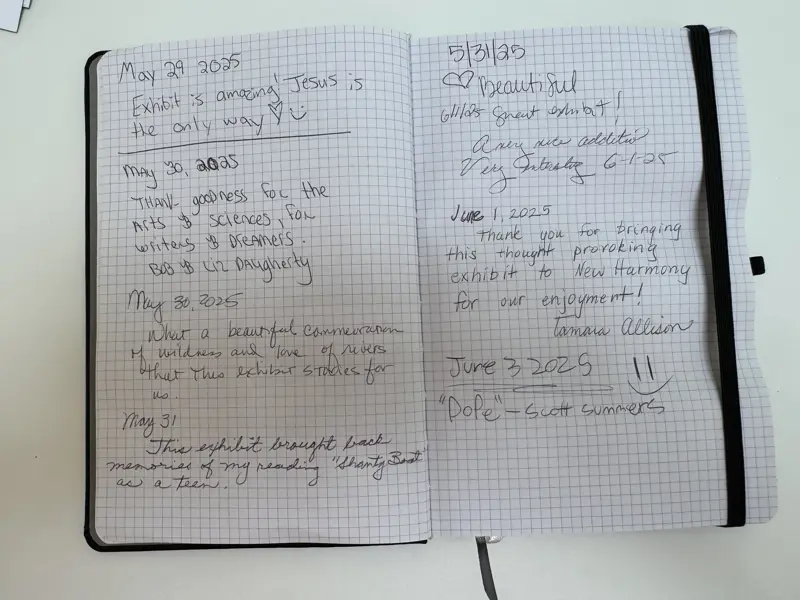 May 29 2025
Exhibit is amazing! Jesus is
the only way
May 30, 2025
Thank goodness for the
Arts & Sciences, for
writers & Dreamers.
Bob & Liz Daugherty
May 30, 2025
What a beautiful
of wildness and love of rivers
that this exhibit for
us.
May 31
This exhibit brought back
memories of my reading "Shanty Boat"
as a teen.
5/31/25
Beautiful
6/1/25 Great exhibit!
A very nice addition
Very 6-1-25
June 1, 2025
Thank you for bringing
this thought provoking
exhibit to New Harmony
for our enjoyment!
Tamara Allison
June 3 2025
"Dope" - Scott Summers